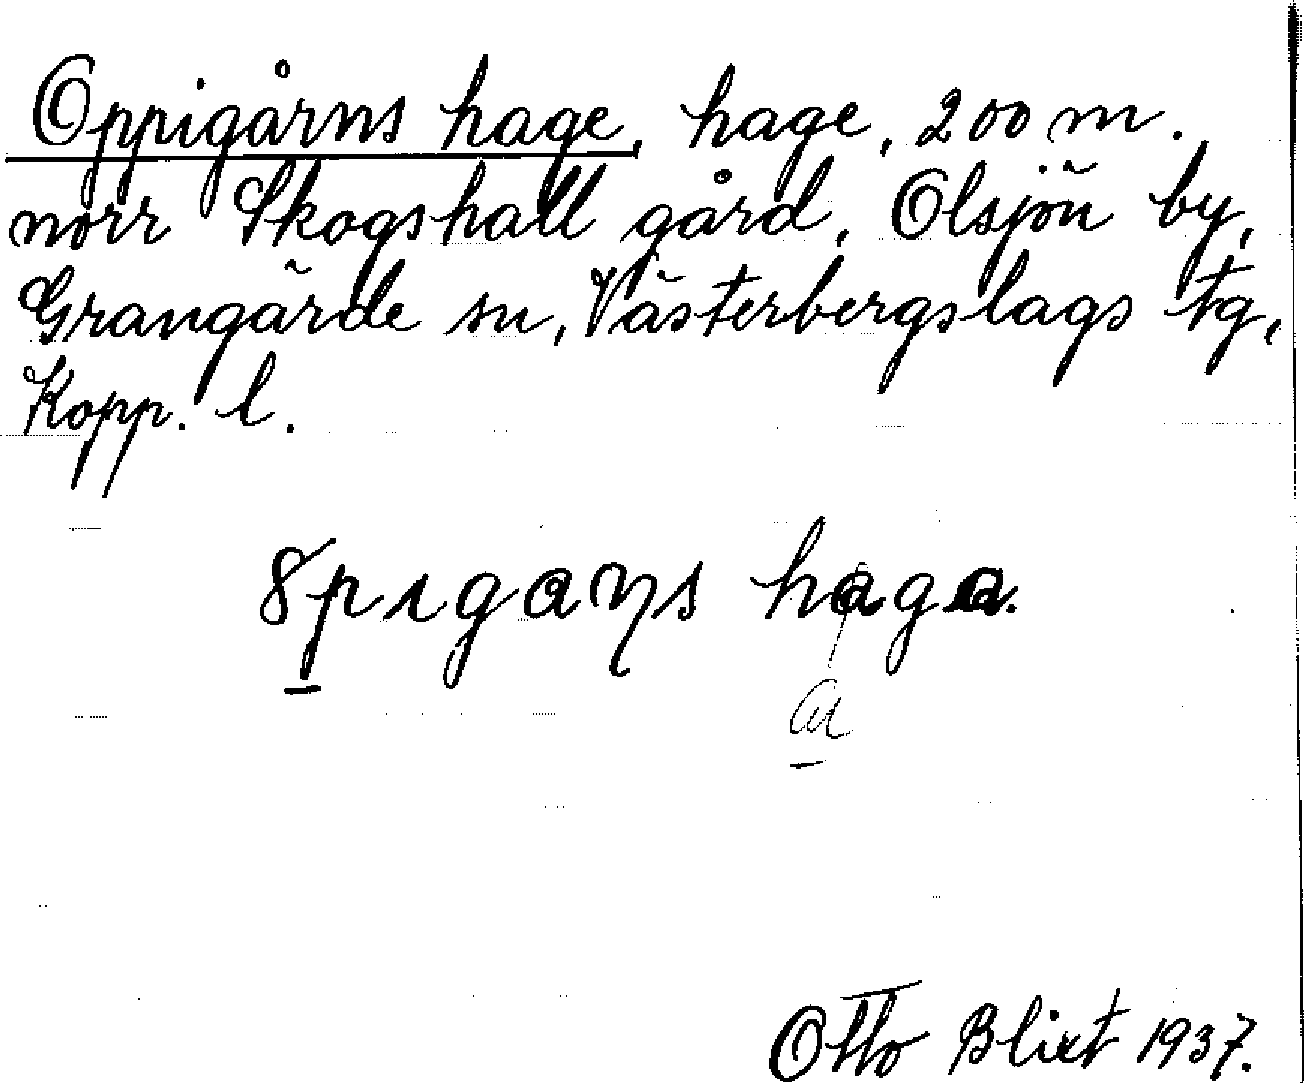 Oppigårns hage, hage, 200 m.
norr Skogshall gård, Olsjön by,
Grangärde sn, Västerbergslags tg,
Kopp. l.
8pıgaŋs haga.
a
Otto Blixt 1937.